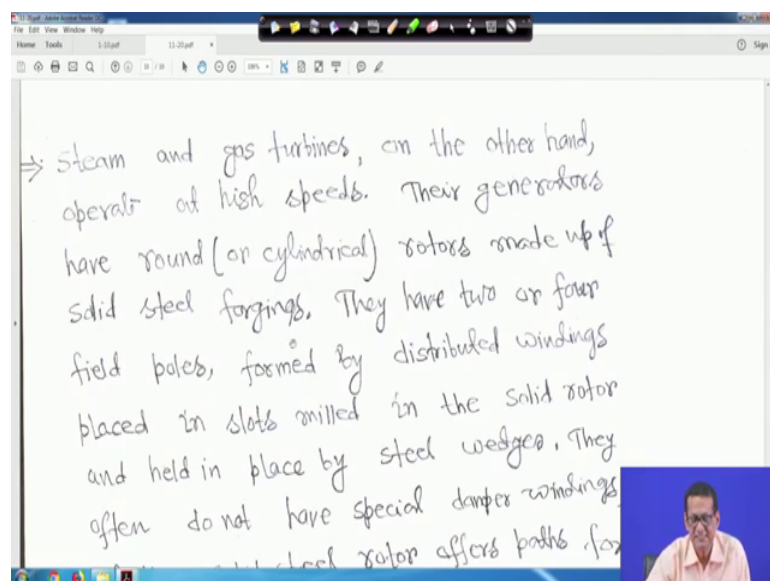 11-20.pdf - Adobe Acrobat Reader DC
File Edit View Window Help
Home Tools 1-10.pdf 11-20.pdf × Sign
⇒ Steam and gas turbines, on the other hand,
operate at high speeds. Their generators
have round (or cylindrical) rotors made up of
solid steel forgings. They have two or four
field poles, formed by distributed windings
placed in slots milled in the solid rotor
and held in place by steel wedges. They
often do not have special damper windings,
steel rotor offers paths for